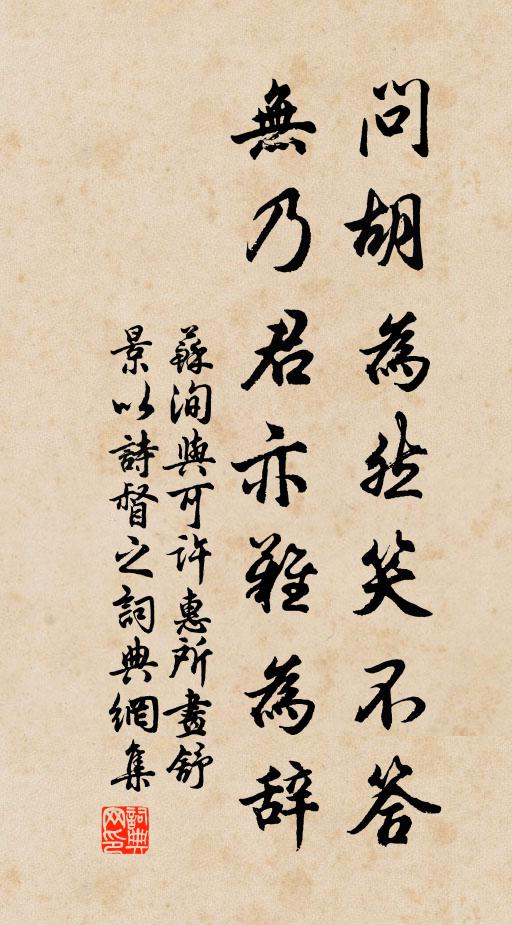 問胡為然笑不答
無乃君亦難為辞
蘇洵與可許惠所畫舒
景以詩督之詞典網集
詞典网印